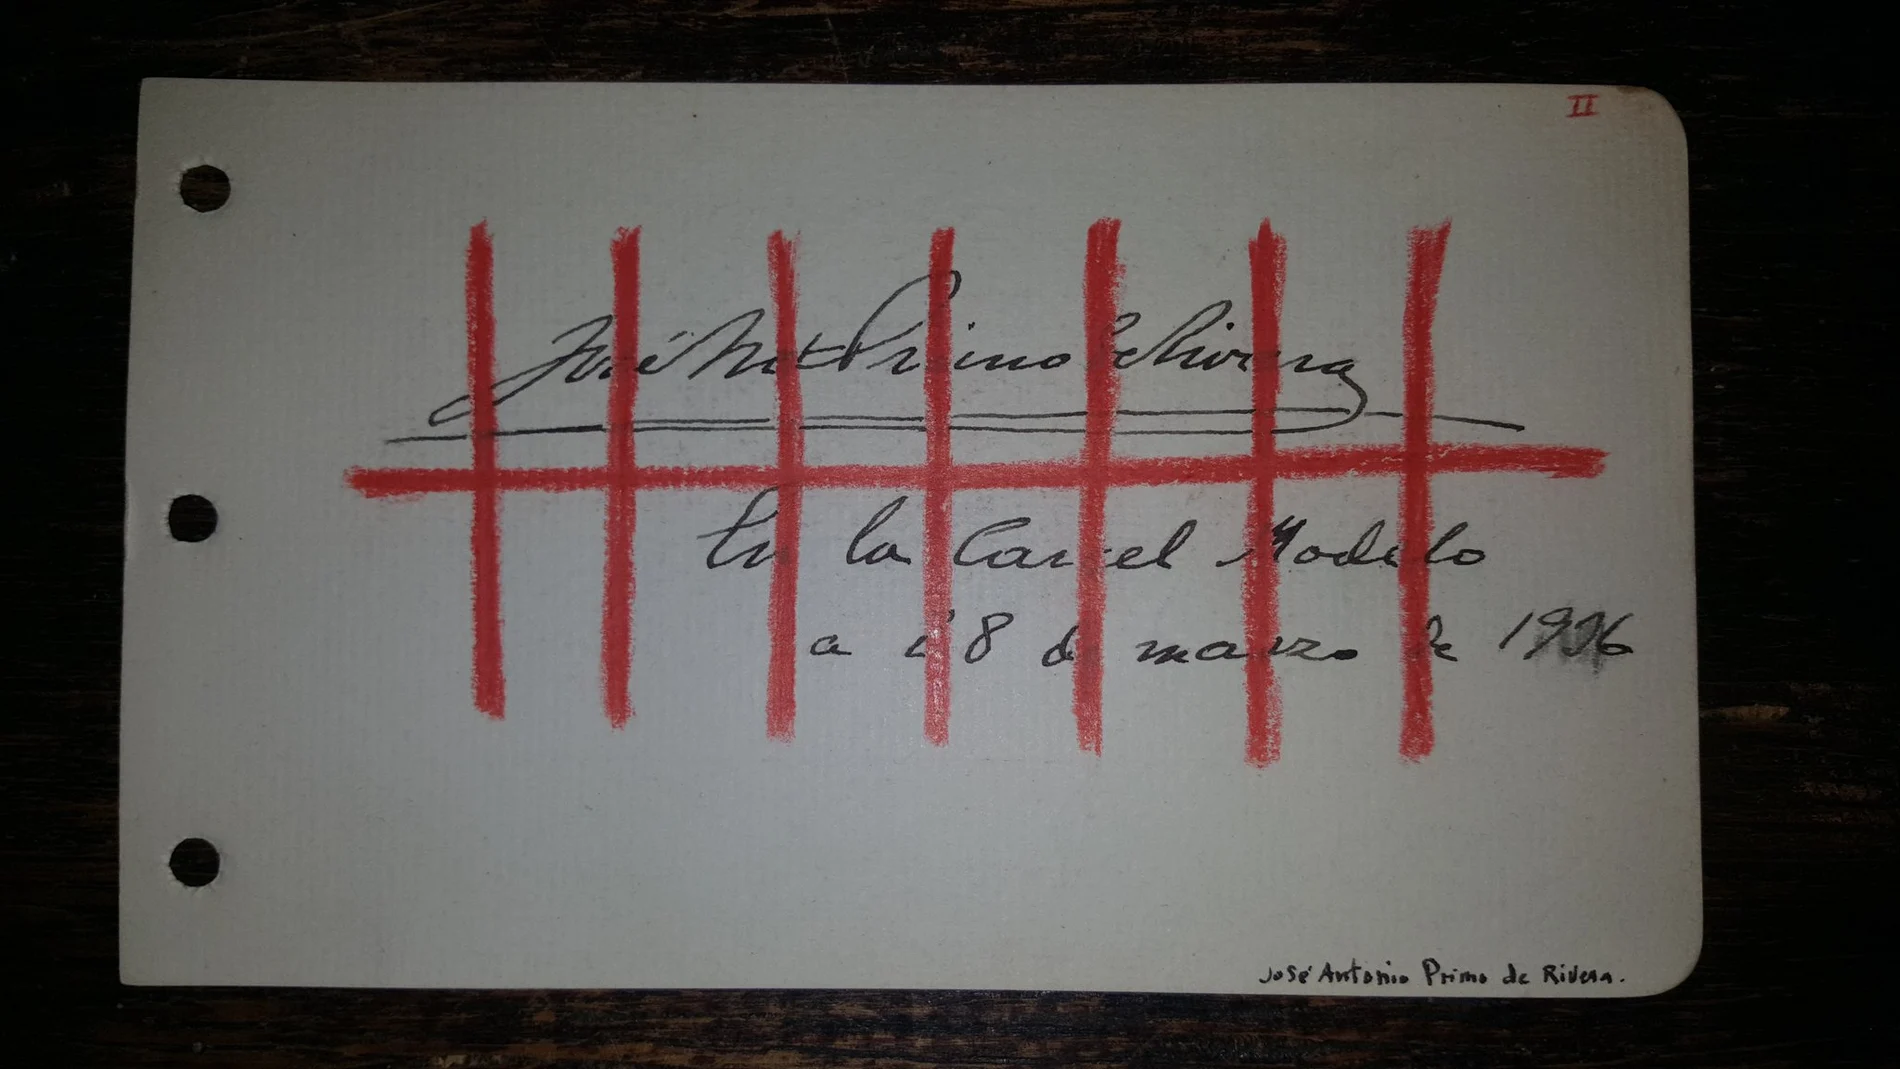 II
José Ant Primo de Rivera
En la Carcel Modelo
a 18 de marzo de 1936
José Antonio Primo de Rivera.